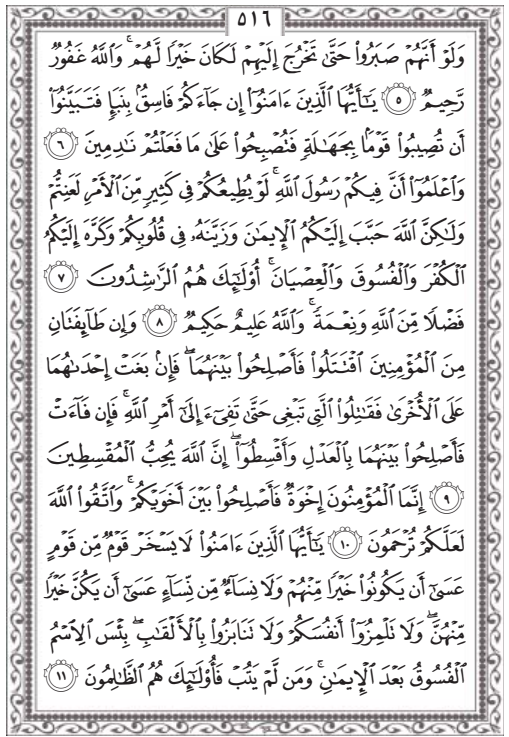 ٥١٦
وَلَوْ أَنَّهُمْ صَبَرُوا۟ حَتَّىٰ تَخْرُجَ إِلَيْهِمْ لَكَانَ خَيْرًا لَّهُمْ ۚ وَٱللَّهُ غَفُورٌ
رَّحِيمٌ ٥ يَـٰٓأَيُّهَا ٱلَّذِينَ ءَامَنُوٓا۟ إِن جَآءَكُمْ فَاسِقٌۢ بِنَبَإٍ فَتَبَيَّنُوٓا۟
أَن تُصِيبُوا۟ قَوْمًۢا بِجَهَـٰلَةٍ فَتُصْبِحُوا۟ عَلَىٰ مَا فَعَلْتُمْ نَـٰدِمِينَ ٦
وَٱعْلَمُوٓا۟ أَنَّ فِيكُمْ رَسُولَ ٱللَّهِ ۚ لَوْ يُطِيعُكُمْ فِى كَثِيرٍ مِّنَ ٱلْأَمْرِ لَعَنِتُّمْ
وَلَـٰكِنَّ ٱللَّهَ حَبَّبَ إِلَيْكُمُ ٱلْإِيمَـٰنَ وَزَيَّنَهُۥ فِى قُلُوبِكُمْ وَكَرَّهَ إِلَيْكُمُ
ٱلْكُفْرَ وَٱلْفُسُوقَ وَٱلْعِصْيَانَ ۚ أُو۟لَـٰٓئِكَ هُمُ ٱلرَّٰشِدُونَ ٧
فَضْلًا مِّنَ ٱللَّهِ وَنِعْمَةً ۚ وَٱللَّهُ عَلِيمٌ حَكِيمٌ ٨ وَإِن طَآئِفَتَانِ
مِنَ ٱلْمُؤْمِنِينَ ٱقْتَتَلُوا۟ فَأَصْلِحُوا۟ بَيْنَهُمَا ۖ فَإِنۢ بَغَتْ إِحْدَىٰهُمَا
عَلَى ٱلْأُخْرَىٰ فَقَـٰتِلُوا۟ ٱلَّتِى تَبْغِى حَتَّىٰ تَفِىٓءَ إِلَىٰٓ أَمْرِ ٱللَّهِ ۚ فَإِن فَآءَتْ
فَأَصْلِحُوا۟ بَيْنَهُمَا بِٱلْعَدْلِ وَأَقْسِطُوٓا۟ ۖ إِنَّ ٱللَّهَ يُحِبُّ ٱلْمُقْسِطِينَ
٩ إِنَّمَا ٱلْمُؤْمِنُونَ إِخْوَةٌ فَأَصْلِحُوا۟ بَيْنَ أَخَوَيْكُمْ ۚ وَٱتَّقُوا۟ ٱللَّهَ
لَعَلَّكُمْ تُرْحَمُونَ ١٠ يَـٰٓأَيُّهَا ٱلَّذِينَ ءَامَنُوا۟ لَا يَسْخَرْ قَوْمٌ مِّن قَوْمٍ
عَسَىٰٓ أَن يَكُونُوا۟ خَيْرًا مِّنْهُمْ وَلَا نِسَآءٌ مِّن نِّسَآءٍ عَسَىٰٓ أَن يَكُنَّ خَيْرًا
مِّنْهُنَّ ۖ وَلَا تَلْمِزُوٓا۟ أَنفُسَكُمْ وَلَا تَنَابَزُوا۟ بِٱلْأَلْقَـٰبِ ۖ بِئْسَ ٱلِٱسْمُ
ٱلْفُسُوقُ بَعْدَ ٱلْإِيمَـٰنِ ۚ وَمَن لَّمْ يَتُبْ فَأُو۟لَـٰٓئِكَ هُمُ ٱلظَّـٰلِمُونَ ١١